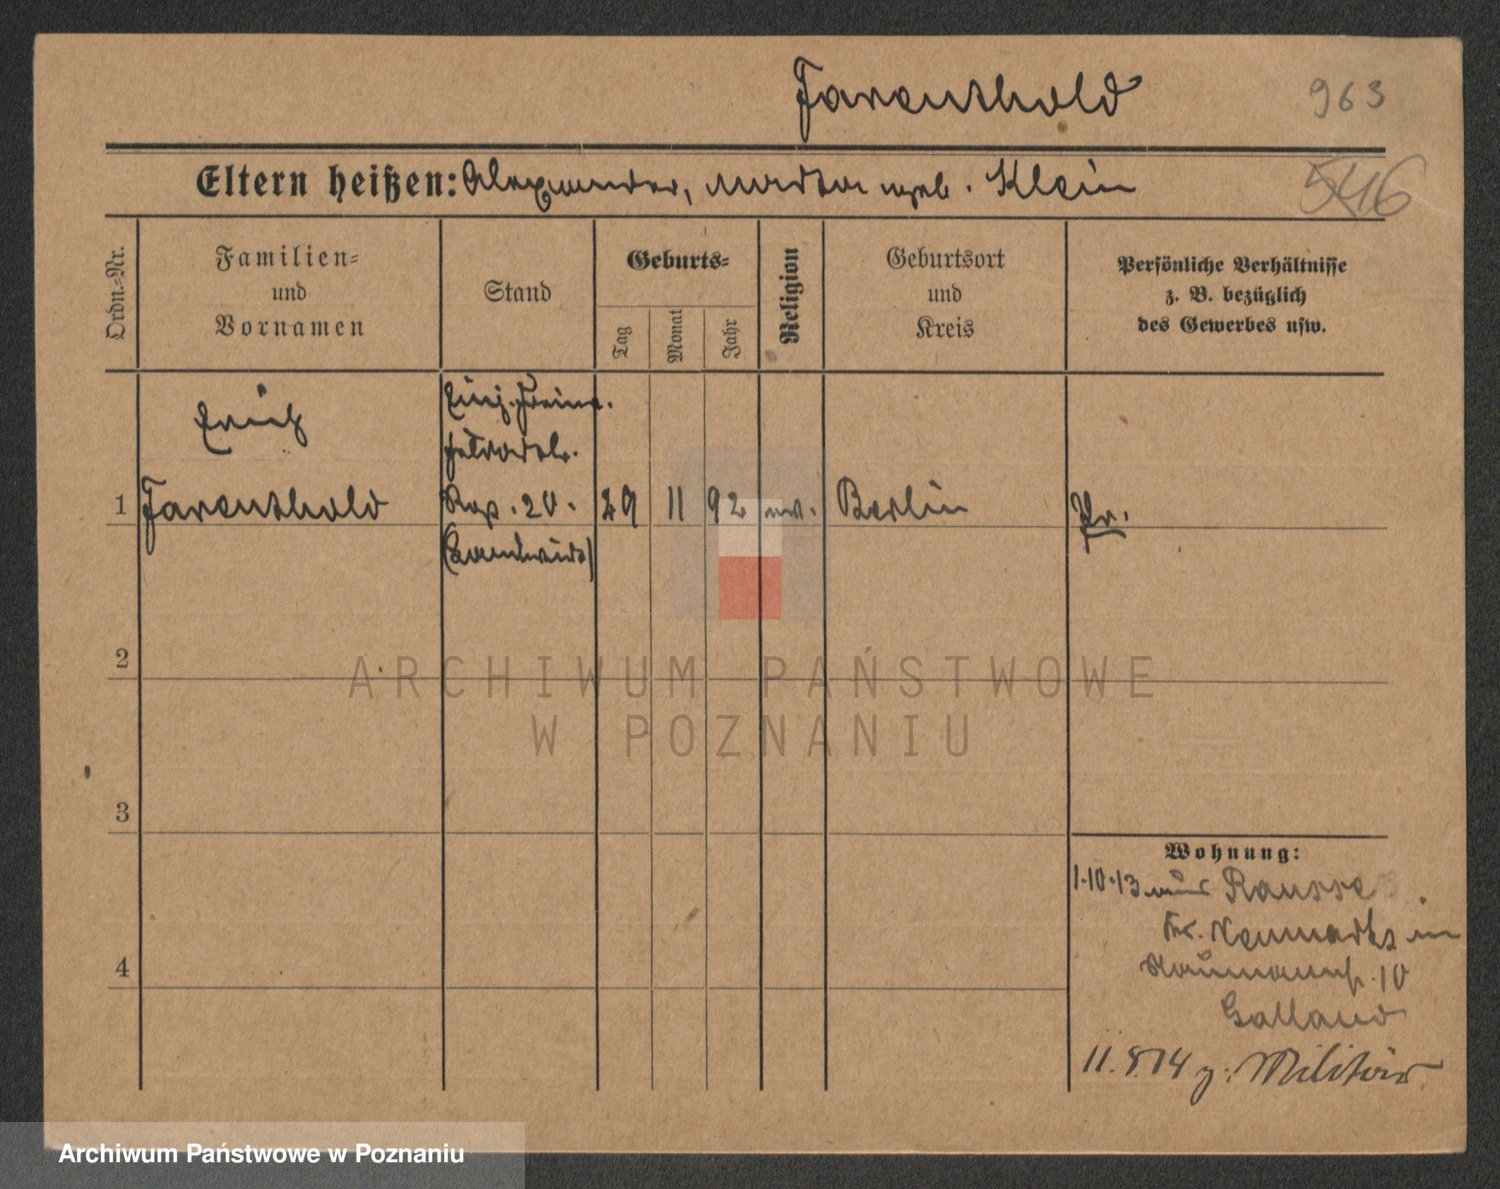 Farenthold
963
Eltern heißen: Alexander, Martha geb. Klein
546
Ordn.-Nr.
Familien-
und
Vornamen
Stand
Geburts-
Tag
Monat
Jahr
Religion
Geburtsort
und
Kreis
Persönliche Verhältnisse
z. B. bezüglich
des Gewerbes usw.
Erich
Einj. Freiw.
Feldartl.
1 Farenthold Rgt. 20. 29 11 92 ev. Berlin Pr.
2
3
4
Wohnung:
1.10.13 aus
in
10
Galland
11.8.14 z. Militär
ARCHIWUM PAŃSTWOWE
W POZNANIU
Archiwum Państwowe w Poznaniu